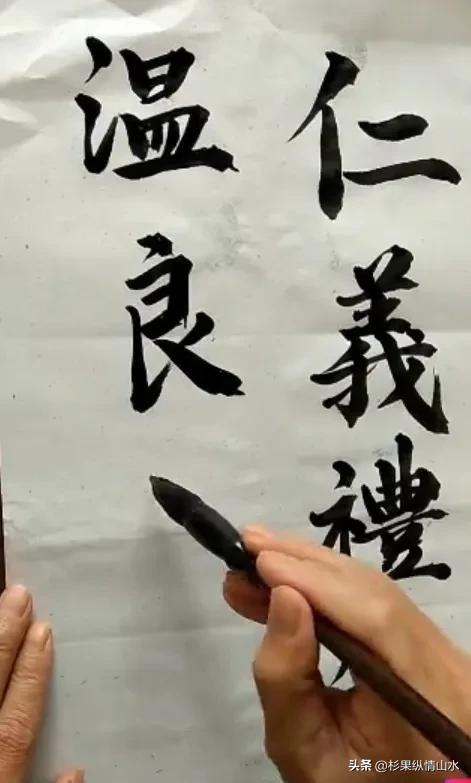 仁義禮
温良
头条 @杉果纵情山水